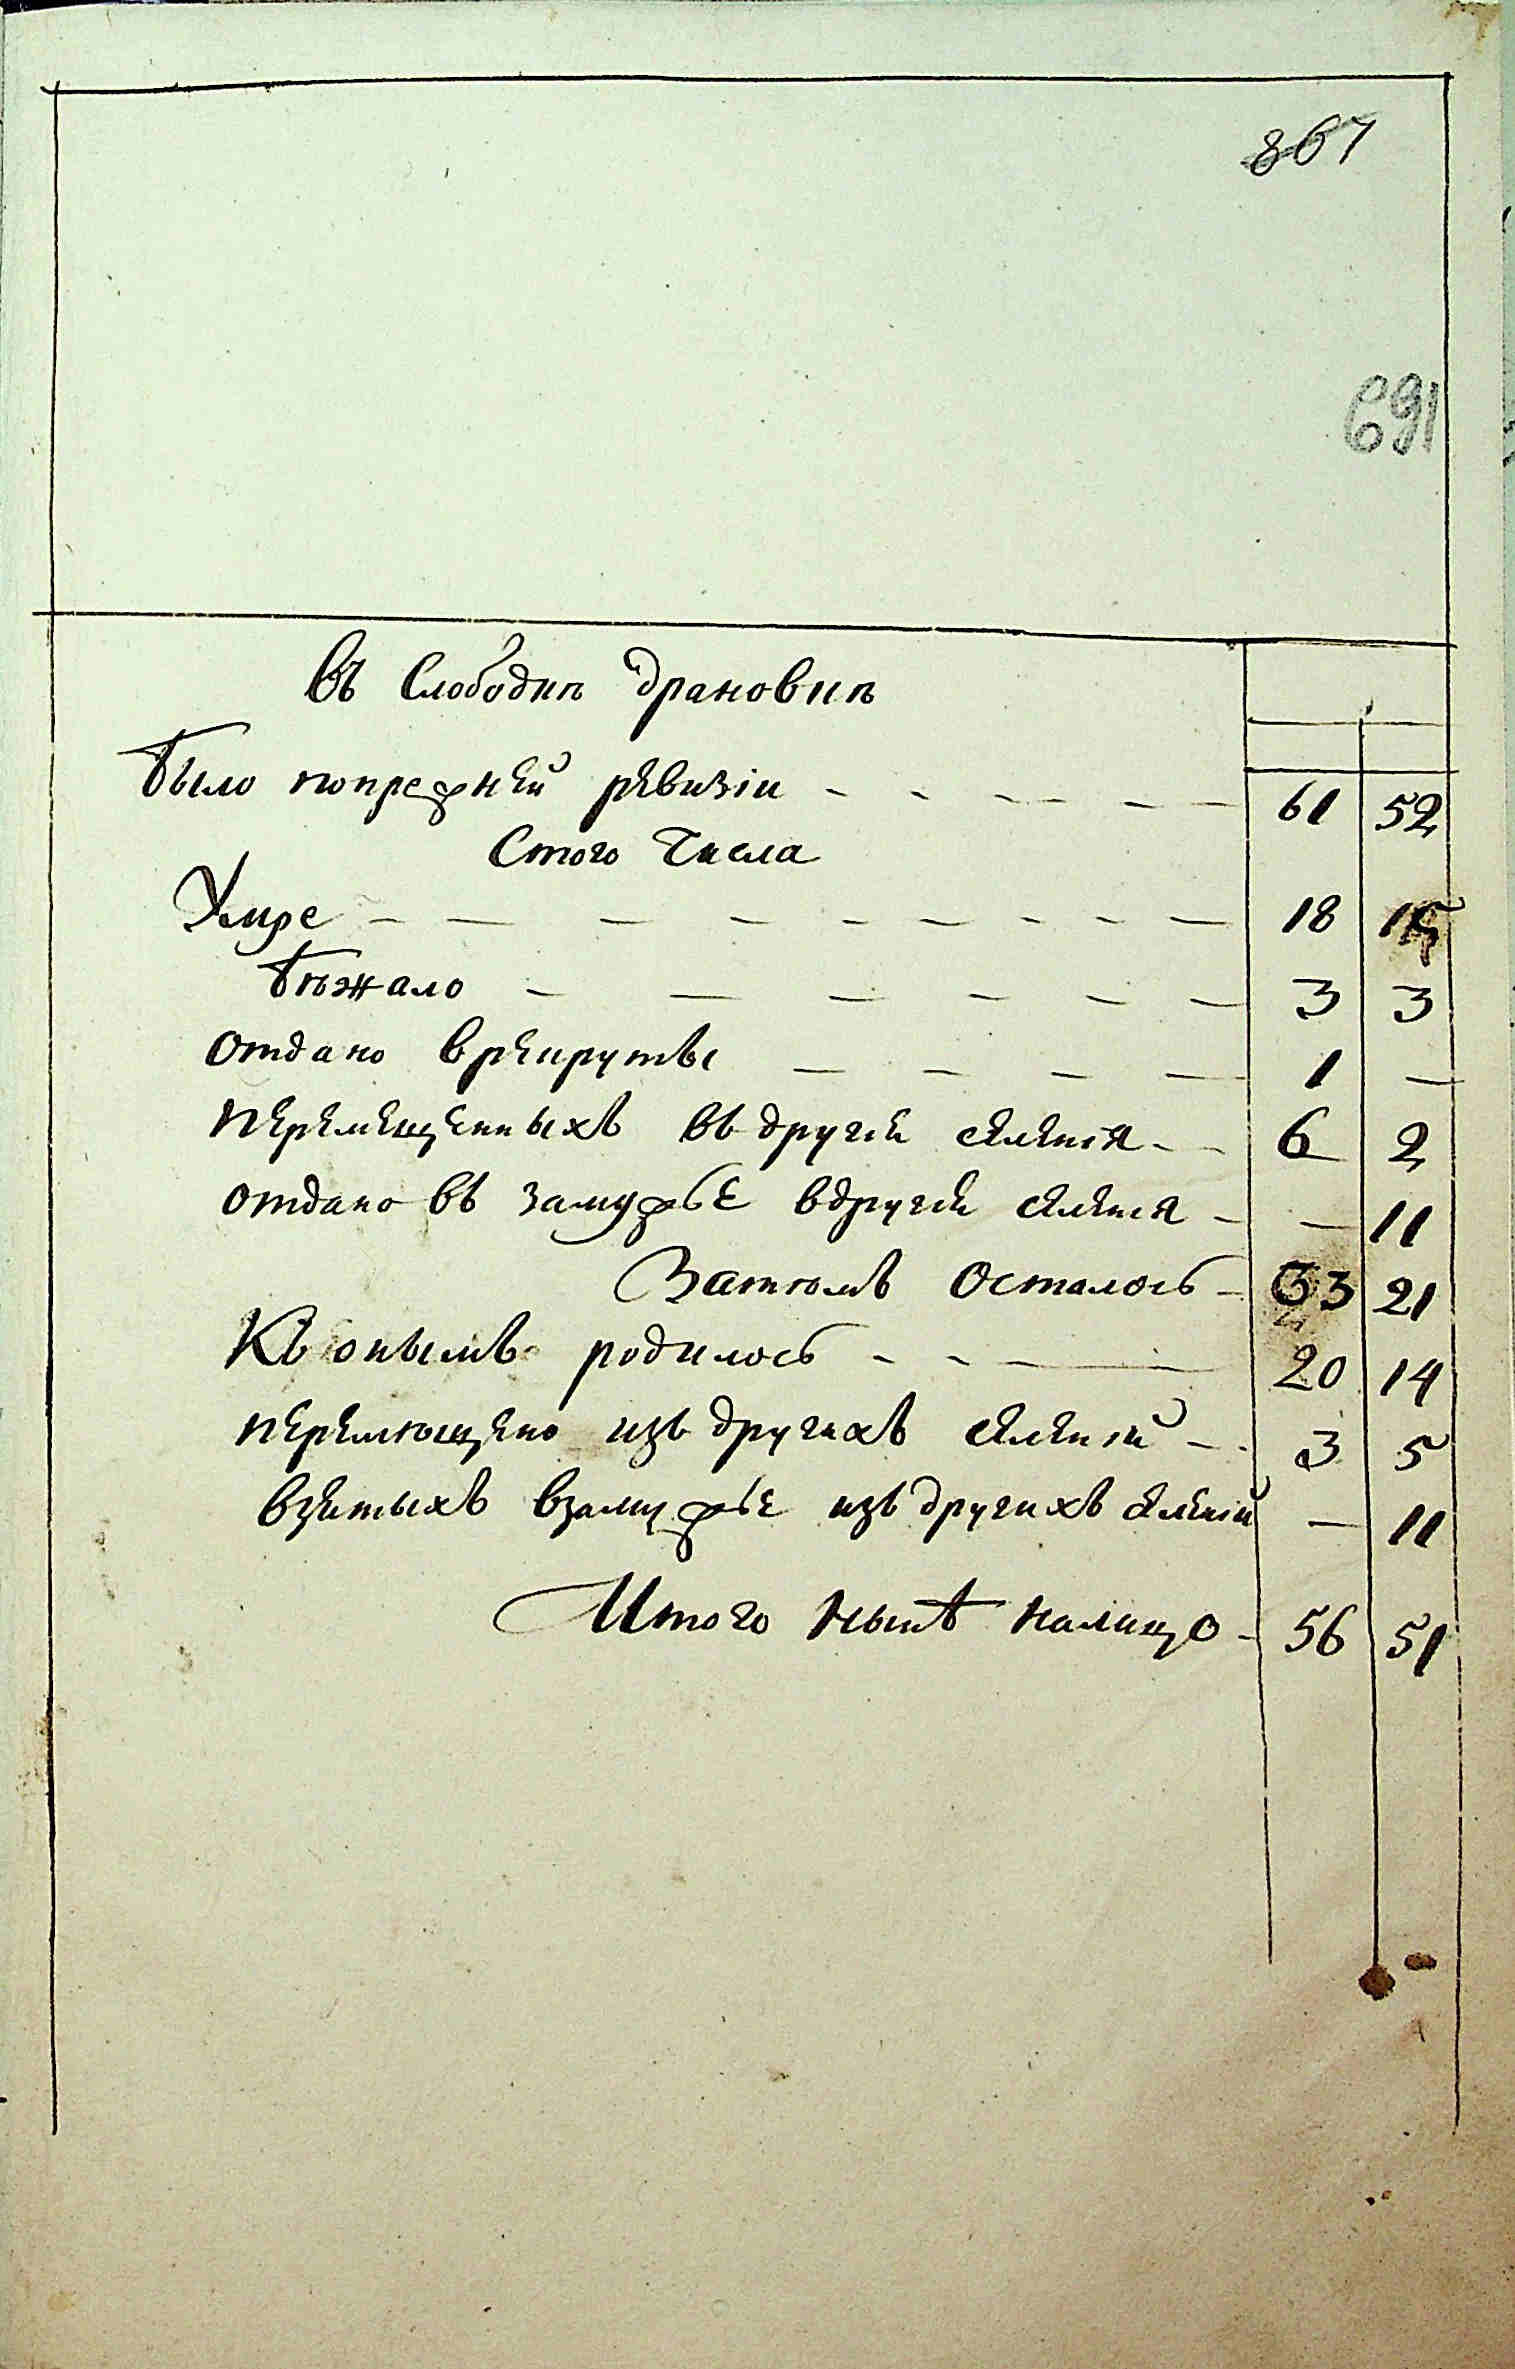 867
691
въ Слободѣ Драновкѣ
было попрежней ревизіи 61 52
Стого Числа
Умре 18 15
бѣжало 3 3
отдано врекруты 1 —
перемещенныхъ въ другіе селенія 6 2
отдано въ замужье вдругіе селенія — 11
Затемъ осталось 33 21
Къ онымъ родилось 20 14
перемѣщено изъ другихъ селеній 3 5
взятыхъ взамужье изъ другихъ селеній — 11
Итого Нынѣ налицо 56 51